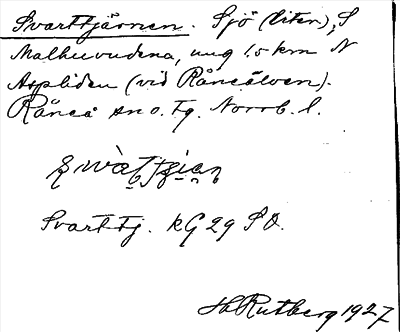 Svarttjärnen. Sjö (liten), S
Malhuvudena, ung 1.5 km N
Aspliden (vid Råneälven).
Råneå sn o. tg. Norrb. l.
Svarttj. KG 29 SO.
H Rutberg 1927